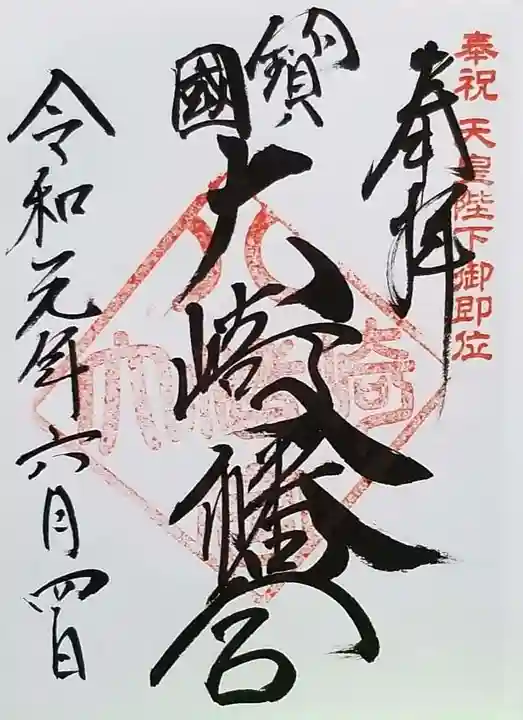 奉祝 天皇陛下御即位
奉拝
國寳
大崎八幡宮
令和元年六月四日